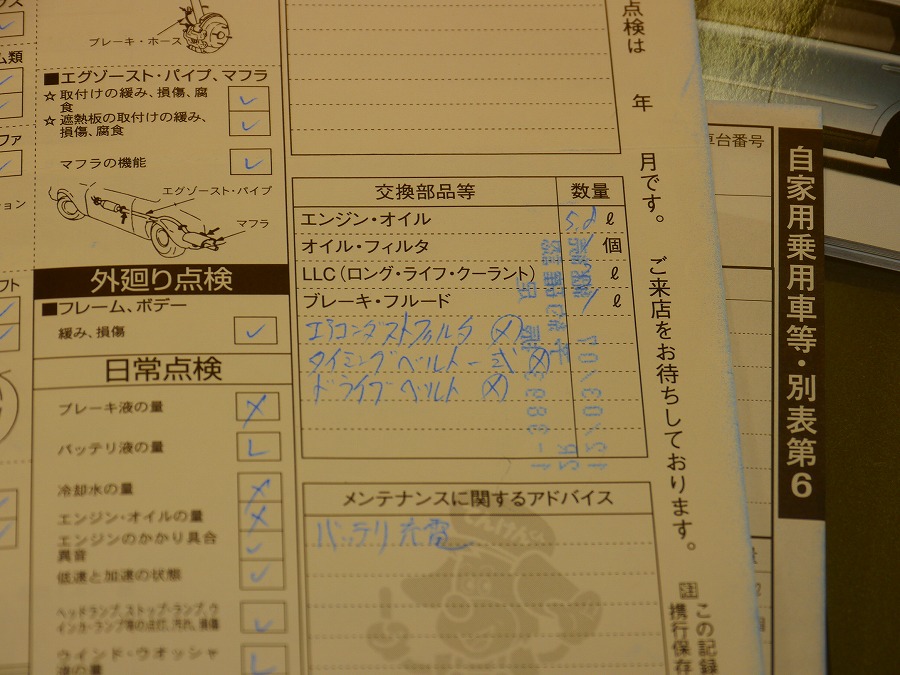 ブレーキ・ホース
ム類
■エグゾースト・パイプ、マフラ
☆取付けの緩み、損傷、腐
食
☆遮熱板の取付けの緩み、
損傷、腐食
マフラの機能
エグゾースト・パイプ
マフラ
外廻り点検
■フレーム、ボデー
緩み、損傷
日常点検
ブレーキ液の量
バッテリ液の量
冷却水の量
エンジン・オイルの量
エンジンのかかり具合
異音
低速と加速の状態
ヘッドランプ、ストップ・ランプ、ウ
インカ・ランプ等の点灯、汚れ、損傷
ウインド・ウオッシャ
液の量
交換部品等 数量
エンジン・オイル ℓ
オイル・フィルタ 個
LLC(ロング・ライフ・クーラント) ℓ
ブレーキ・フルード 1 ℓ
エアコンダストフィルタ ㋱
タイミングベルト一式 ㋱
ドライブベルト ㋱
メンテナンスに関するアドバイス
バッテリ充電
点検は 年 月です。 ご来店をお待ちしております。
注 この記録
携行保存
車台番号
自家用乗用車等・別表第6